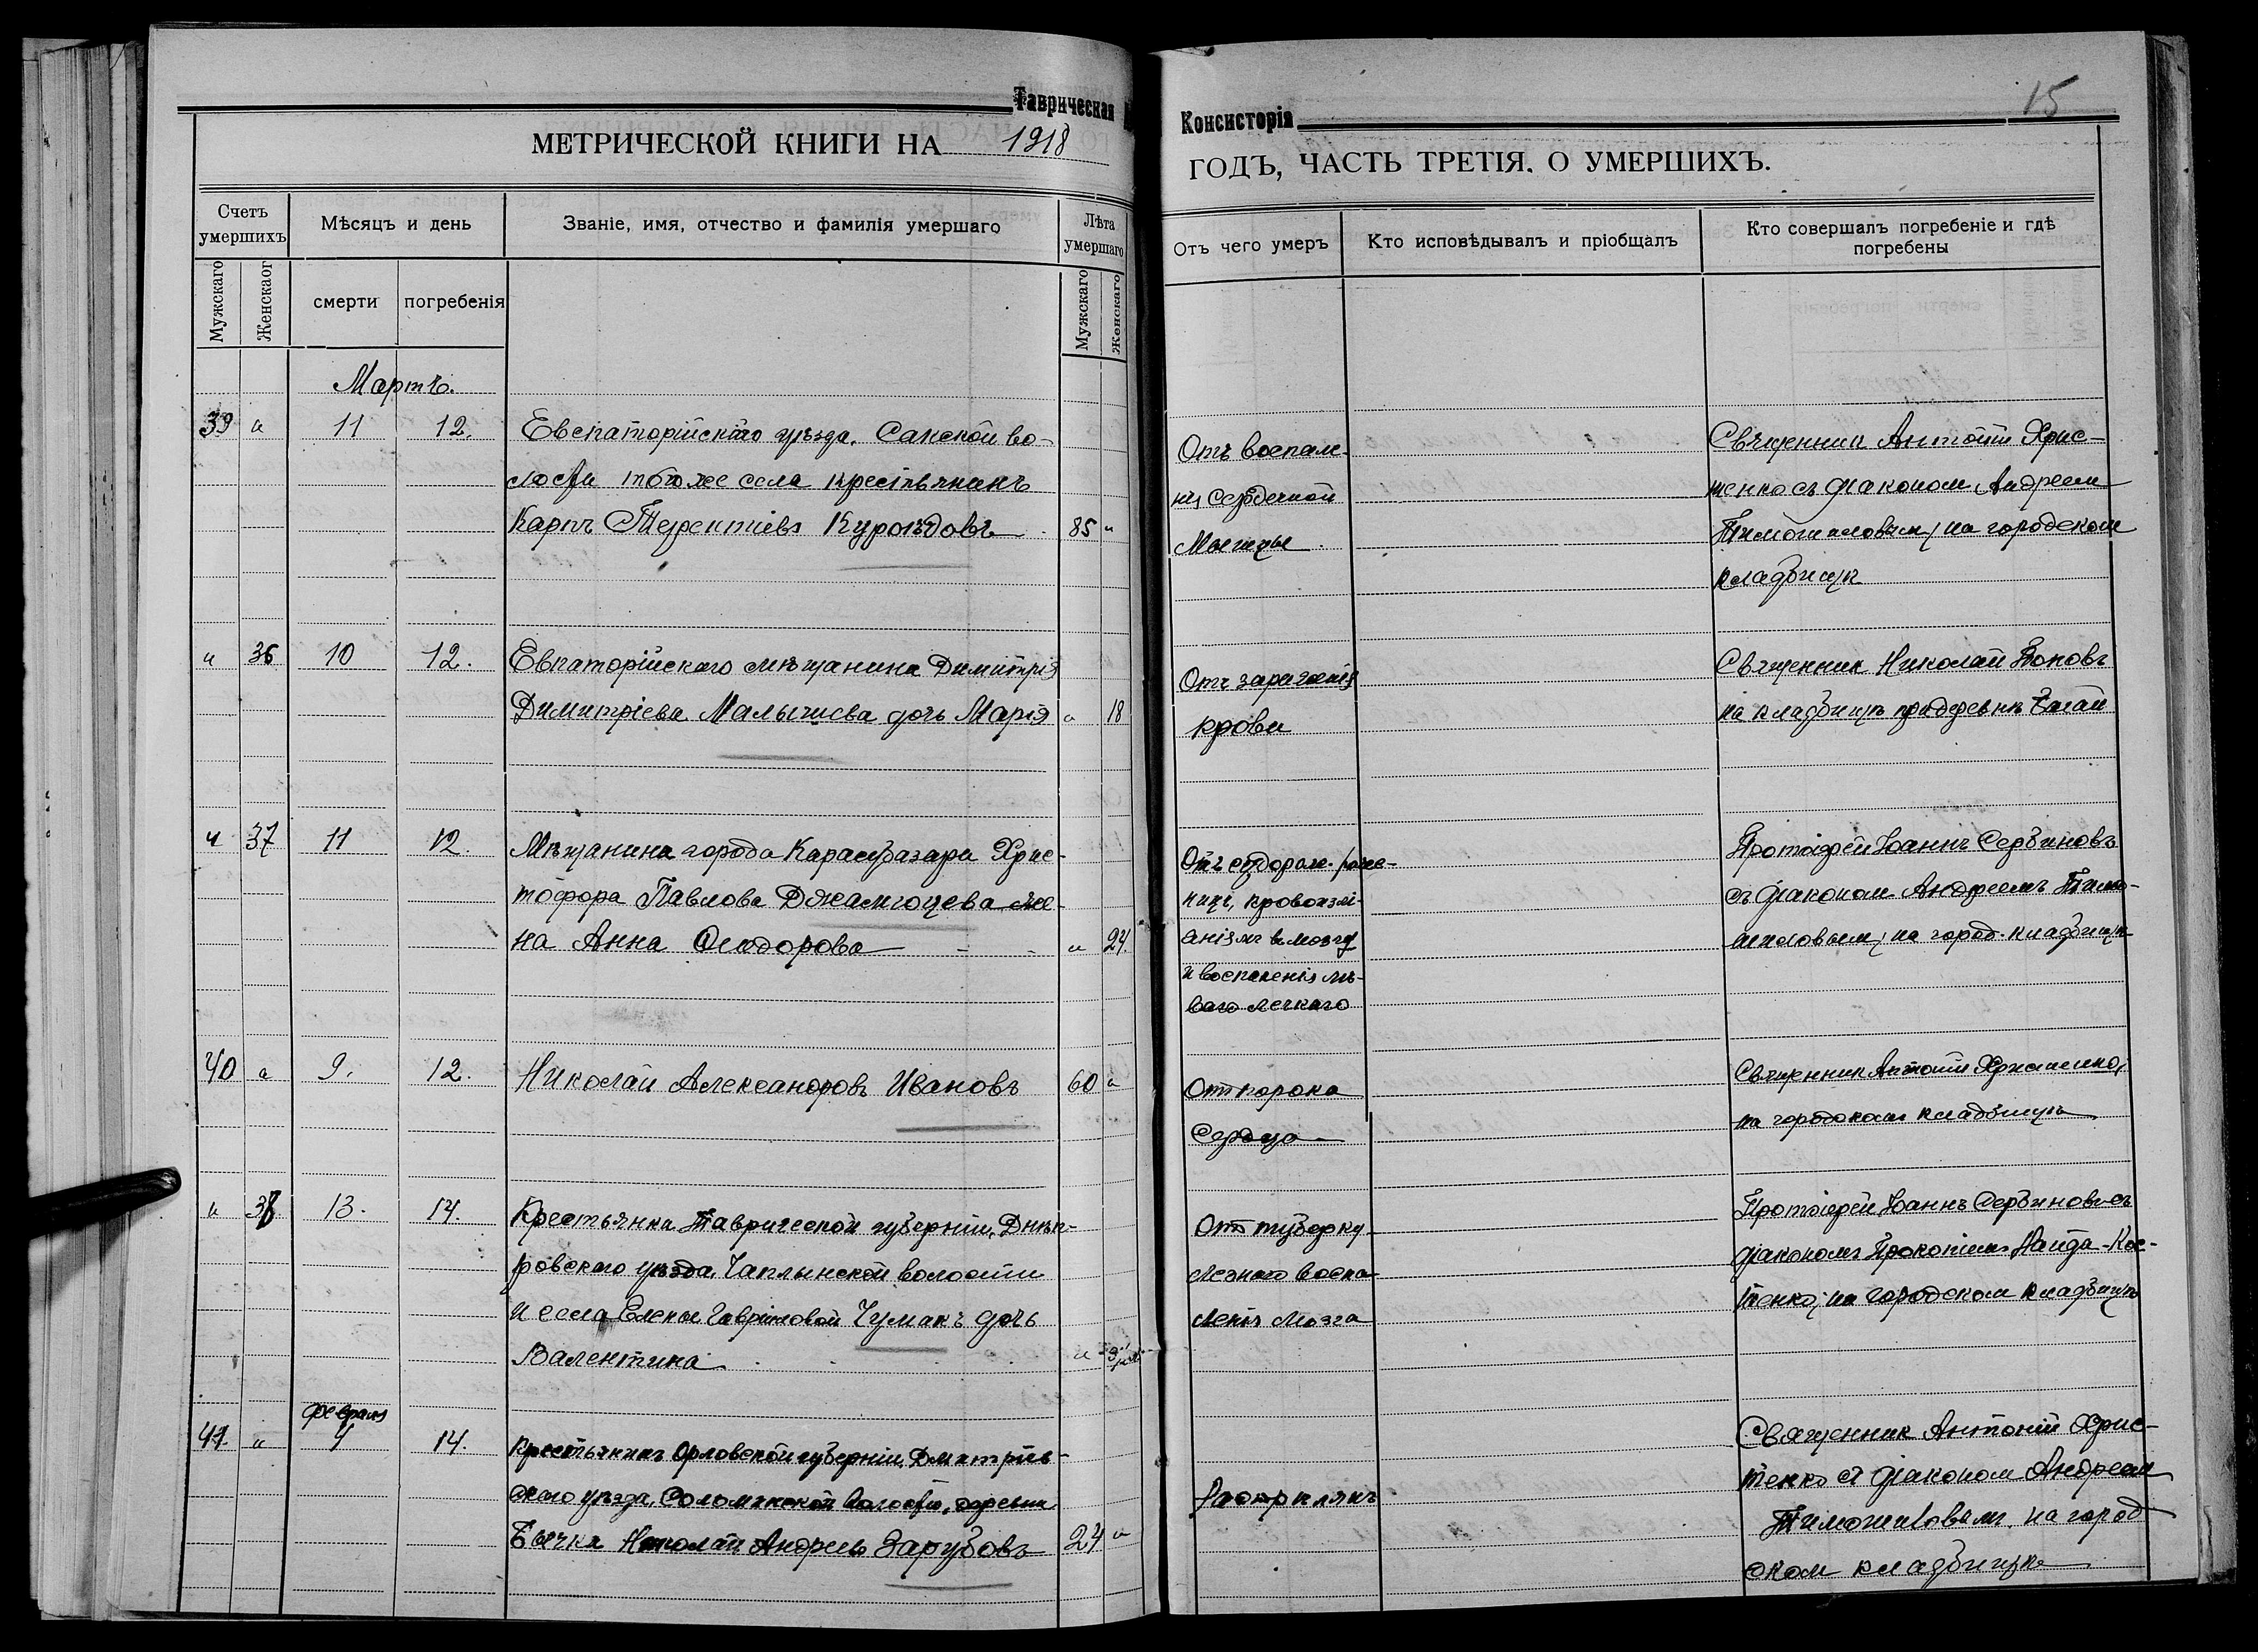 Таврическая
Консисторія
15
МЕТРИЧЕСКОЙ КНИГИ НА 1918
ГОДЪ, ЧАСТЬ ТРЕТІЯ, О УМЕРШИХЪ.
Счетъ умершихъ
Мѣсяцъ и день
Званіе, имя, отчество и фамилія умершаго
Лѣта умершаго
Отъ чего умеръ
Кто исповѣдывалъ и пріобщалъ
Кто совершалъ погребеніе и гдѣ погребены
Мужскаго
Женскаог
смерти
погребенія
Мужскаго
Женскаго
Мартъ.
39 " 11 12. Евпаторійскаго уѣзда, Сакской во-
лости того же села крестьянинъ
Карпъ Терентіевъ Куроѣдовъ 85 "
Отъ воспале-
нія сердечной
мышцы
Священник Антоній Хрис-
тенко съ діаконом Андреем
Тимошиловым, на городском
кладбищѣ
" 36 10 12. Евпаторійскаго мѣщанина Димитрія
Димитріева Малычева дочь Марія " 18
Отъ зараженія
крови
Священник Николай Поповъ
на кладбищѣ при деревнѣ Чагай
" 37 11 12. Мѣщанина города Карасубазара Хрис-
тофора Павлова Джамгоцева же-
на Анна Феодорова " 24.
Отъ судорог. роже-
ницъ, кровоизлі-
янія въ мозгу
и воспаленія лѣ-
ваго легкаго
Протоіерей Іоаннъ Сербиновъ
съ діаконом Андреемъ Тимо-
шиловым, на город. кладбищѣ
40 " 9. 12. Николай Александровъ Ивановъ 60 "
От порока
сердца
Священник Антоній Христенко,
на городском кладбищѣ
" 38 13. 14. Крестьянки Таврической губерніи, Днѣп-
ровскаго уѣзда, Чаплынской волости
и села Елены Гавриловой Чумакъ дочь
Валентина "
От туберку-
лезнаго воспа-
ленія мозга
Протоіерей Іоаннъ Сербиновъ съ
діаконом Прокопіем Найда-Кос-
тенко, на городском кладбищѣ
февраля
41. " 4 14. Крестьянинъ Орловской губерніи, Дмитріев-
скаго уѣзда, волости, деревни
Бычки Николай Андреев Зарубовъ 24 "
Разстрѣлянъ
Священник Антоній Хрис-
тенко с діаконом Андреем
Тимошиловым, на город-
ском кладбищѣ